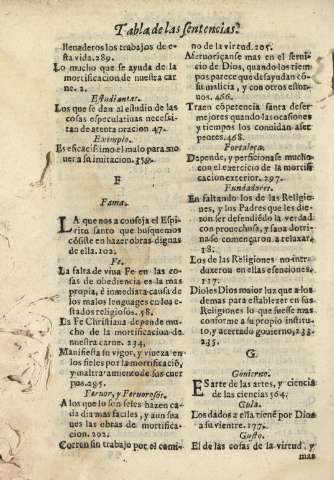 Tabla de las sentencias.
llenaderos los trabajos de e-
sta vida. 289.
Lo mucho que se ayuda de la
mortificacion de nuestra car
ne. 2.
Estudiantes.
Los que se dan al estudio de las
cosas especulatiuas necessi-
tan de atenta oracion 47.
Exemplo.
Es eficacissimo el malo para mo
uer a su imitacion. 359.
F
Fama.
LA que nos acõseja el Espi-
ritu santo que busquemos
cõsiste en hazer obras dignas
de ella. 102.
Fe.
La falta de viua Fe en las co-
sas de obediencia es la mas
propia, è inmediata causa de
los malos lenguages en los es
tados religiosos. 58.
La Fe Christiana depende mu-
cho de la mortificacion de
nuestra carne. 234.
Manifiesta su vigor, y viueza en
los fieles por la mortificaciõ,
y maltratamiento de sus cuer
pos. 295.
Feruor, y Feruorosos.
A los que lo son seles hazen ca-
da dia mas faciles, y aun sua
ues las obras de mortifica-
cion. 202.
Corren sin trabajo por el cami-
no de la virtud. 205.
Aferuorizanse mas en el serui-
cio de Dios, quando los tiem
pos parece que desayudan cõ
su malicia, y con otros estor-
uos. 466.
Traen cõpetencia santa de ser
mejores quando las ocasiones
y tiempos los conuidan a ser
peores. 468.
Fortaleza.
Depende, y perficionase mucho
con el exercicio de la mortifi-
cacion exterior. 297.
Fundadores.
En faltando los de las Religio-
nes, y los Padres que les die-
ron ser defendiẽdo la verdad
con prouechosa, y sana dotri-
na se començaron a relaxar.
18.
Los de las Religiones no intro-
duzeron en ellas esenciones.
117.
Dioles Dios maior luz que a los
demas para establezer en sus
Religiones lo que fuesse mas
conforme a su proprio institu-
to, y acertado gouierno, 233.
235.
G.
Gouierno.
ES arte de las artes, y ciencia
de las ciencias 564.
Gula.
Los dados a ella tienẽ por Dios
a su vientre. 197.
Gusto.
El de las cosas de la virtud, y
mas